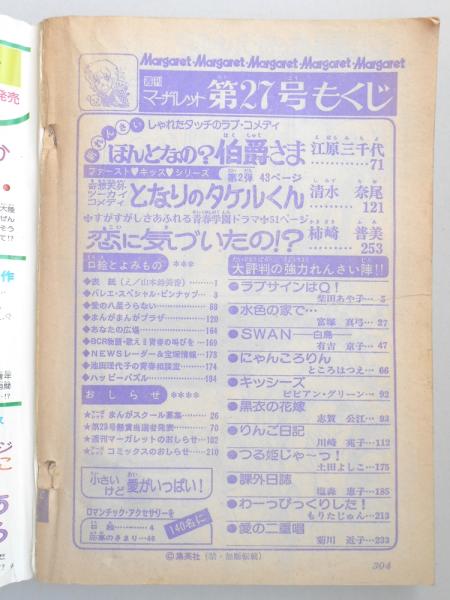 Margaret・Margaret・Margaret・Margaret・Margaret
週刊
マーガレット 第27号もくじ
新れんさい しゃれたタッチのラブ・コメディ
ほんとなの?伯爵さま 江原三千代
71
ファースト♥キッス♥シリーズ 第2弾 43ページ
コメディ となりのタケルくん 清水 奈尾
121
✤すがすがしさあふれる青春学園ドラマ✤51ページ
恋に気づいたの!? 柿崎 普美
253
口絵とよみもの ✽✽✽
◆表紙(え/山本鈴美香)……1
◆バレエ・スペシャル・ピンナップ…3
◆愛の八星うらない……69
◆まんがまんがプラザ……120
◆あなたの広場……164
◆BCR物語・歌え!青春の叫びを…169
◆NEWSレーダー&宝塚情報…173
◆池田理代子の青春相談室……174
◆ハッピーパズル……184
おしらせ ✽✽✽
まんがスクール募集……26
★第23号懸賞当選者発表……70
★週刊マーガレットのおしらせ…182
コミックスのおしらせ……210
小さいけど愛がいっぱい!
ロマンチック・アクセサリーを
140名に
口絵……4
応募のきまり…46
大評判の強力れんさい陣!!
●ラブサインはQ!
柴田あや子…5
●水色の家で…
富塚 真弓…27
●SWAN―白鳥―
有吉 京子…47
●にゃんころりん
ところはつえ…66
●キッシーズ
ビビアン・グリーン…92
●黒衣の花嫁
志賀 公江…93
●りんご日記
川崎 苑子…112
●つる姫じゃ〜っ!
土田よしこ…175
●課外日誌
塩森 恵子…185
●わーっびっくりした!
もりたじゅん…213
●愛の二重唱
菊川 近子…233
©集英社(禁・無断転載)
304